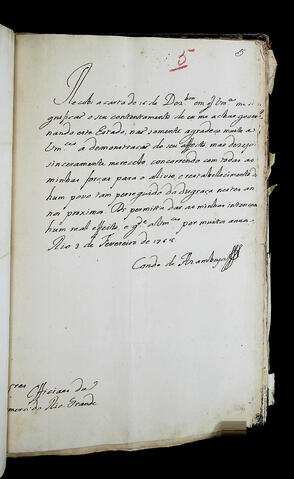 5
5
Recebi a carta de 15 de Dezbro em q̃ Vmces me si-
gnificaõ o seu contentamento de eu me achar gover-
nando este Estado, naõ somente agradeço muito a
Vmces a demonstraçaõ do seu affecto, mas dezejo
sinceramente merecello concorrendo com todas as
minhas forças para o alivio, e restabelecimento de
hum povo tam perseguido da disgraça nestes an-
nos proximos. Ds permitta dar as minhas intençoens
hum real effeito e gde a Vmces por muitos annos.
Rio 3 de Fevereiro de 1768
Conde de Azambuja
Officiaes da
do Rio Grande